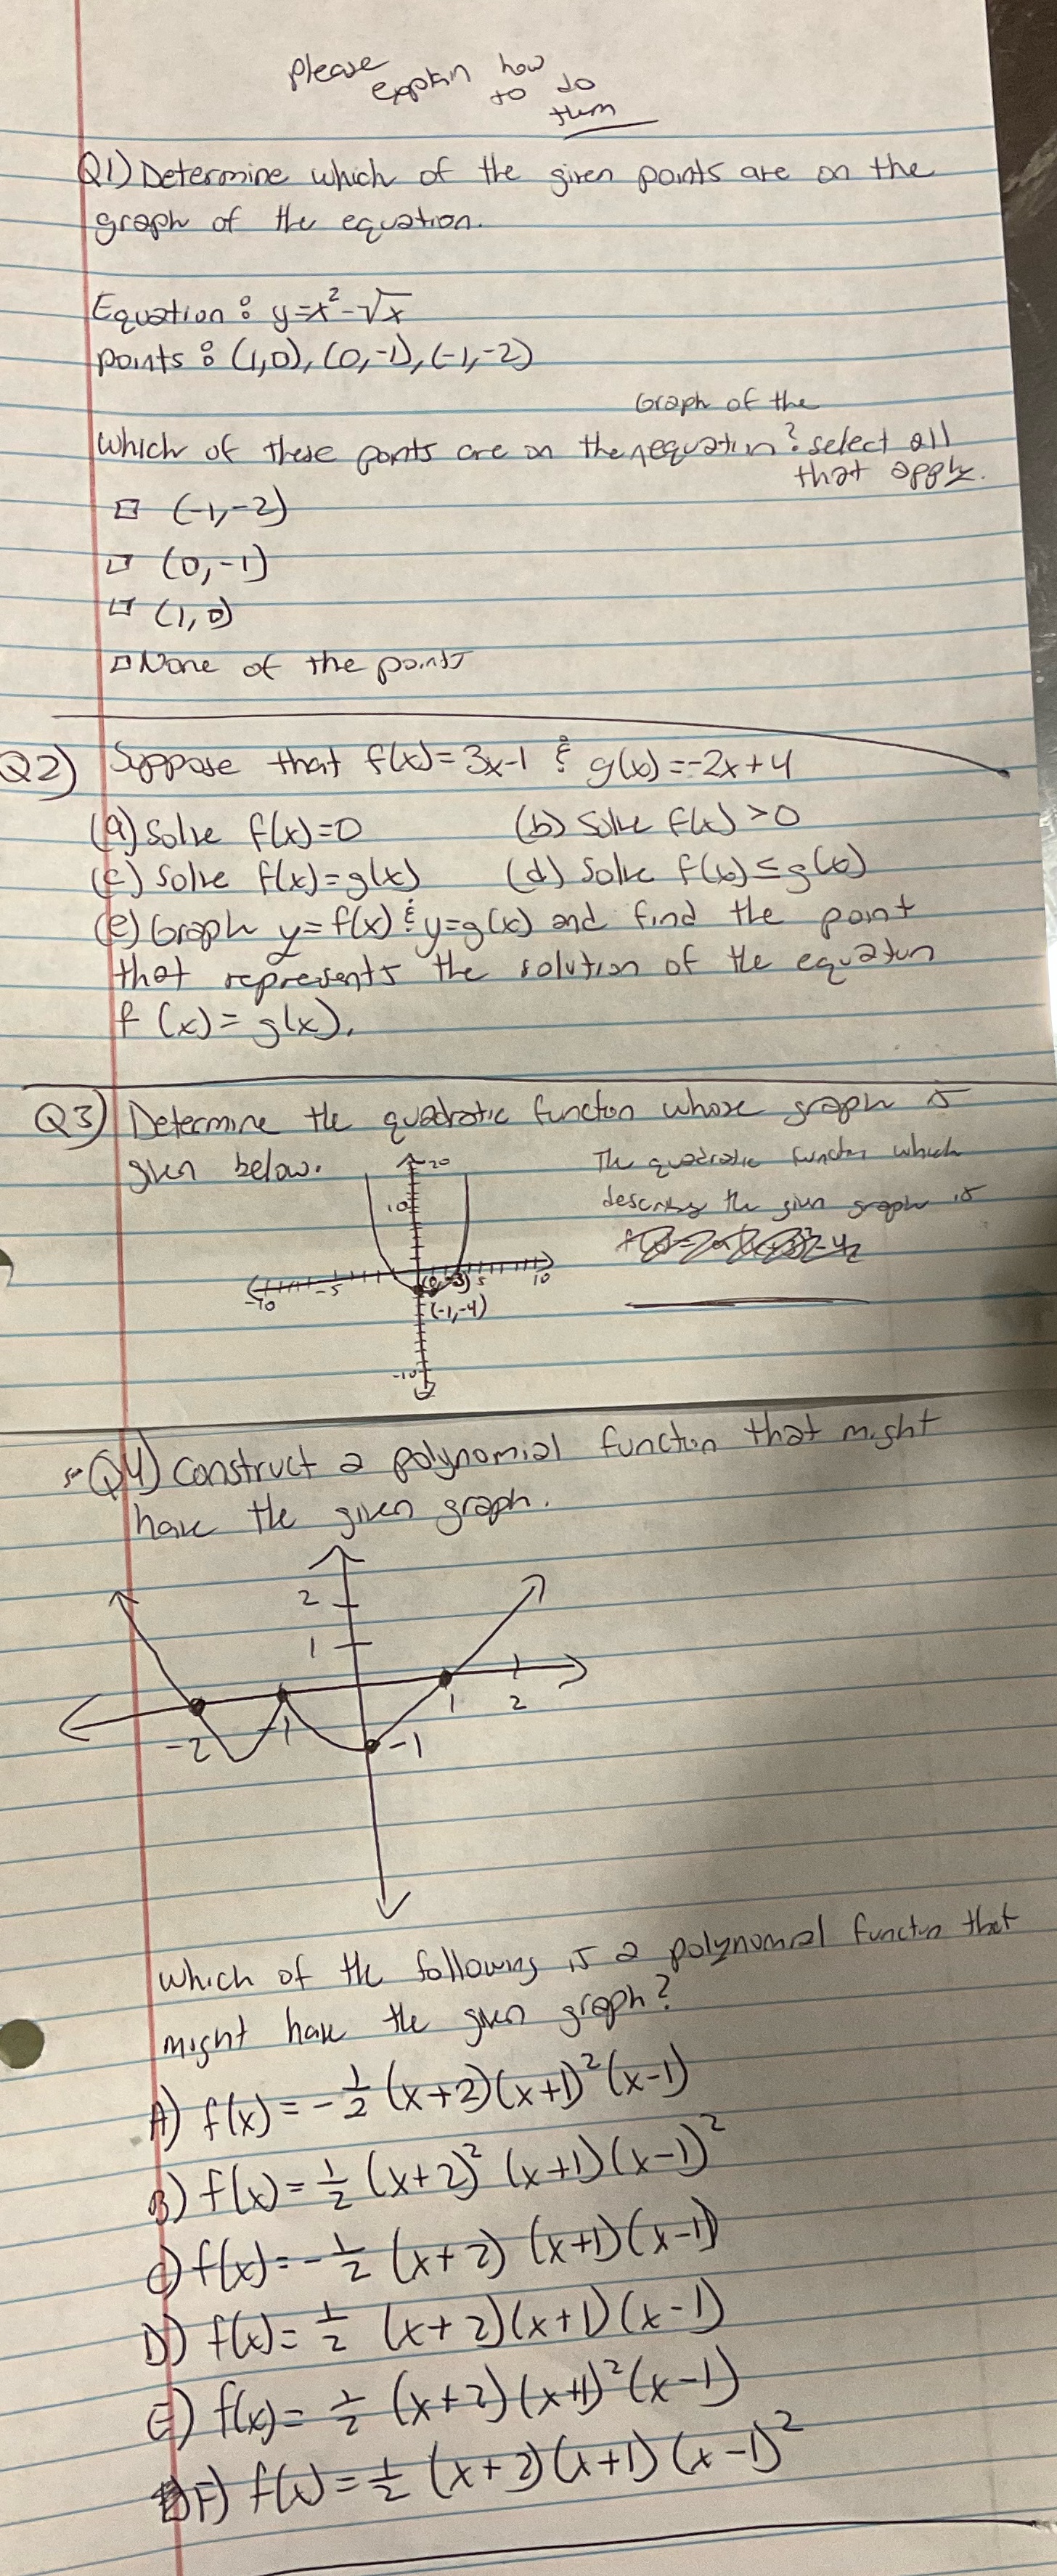 please
explain how
to do
them
Q1) Determine which of the given points are on the
graph of the equation.
Equation: y=x²-√x
points: (1,0), (0,-1), (-1,-2)
Graph of the
which of these points are on the equation? select all
that apply.
□ (-1,-2)
□ (0,-1)
□ (1,0)
□ None of the points
Q2) Suppose that f(x)=3x-1 & g(x)=-2x+4
(a) Solve f(x)=0 (b) Solve f(x)>0
(c) Solve f(x)=g(x) (d) Solve f(x)≤g(x)
(e) Graph y=f(x) & y=g(x) and find the point
that represents the solution of the equation
f(x)=g(x).
Q3) Determine the quadratic function whose graph is
given below.
The quadratic function which
describes the given graph is
20
10
-10 -5 (0,-3) 5 10
(-1,-4)
-10
Q4) Construct a polynomial function that might
have the given graph.
2
1
-2 -1 1 2
-1
which of the following is a polynomial function that
might have the given graph?
A) f(x) = -1/2 (x+2)(x+1)²(x-1)
B) f(x) = 1/2 (x+2)² (x+1)(x-1)²
C) f(x) = -1/2 (x+2) (x+1)(x-1)
D) f(x) = 1/2 (x+2)(x+1)(x-1)
E) f(x) = 1/2 (x+2)(x+1)²(x-1)
F) f(x) = 1/2 (x+2)(x+1)(x-1)²